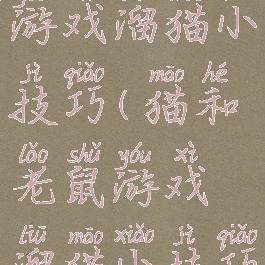 游戏溜猫小
jì qiǎo māo hé
技巧(猫和
lǎo shǔ yóu xì
老鼠游戏
liū māo xiǎo jì qiǎo
溜猫小技巧